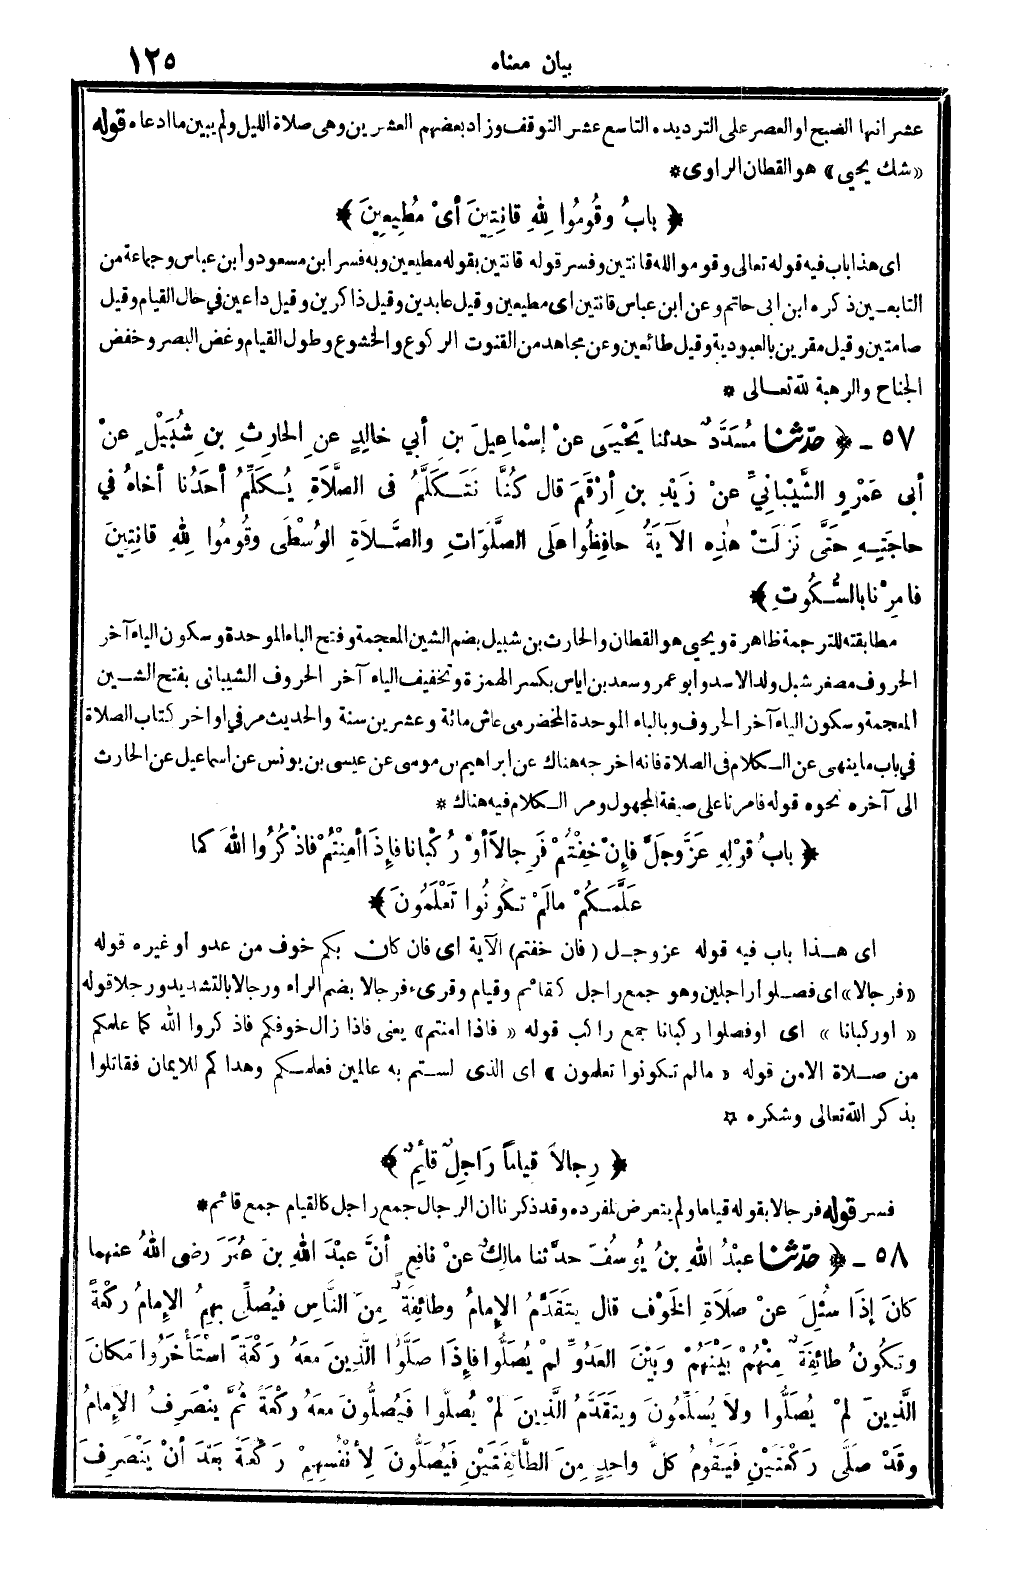 بيان معناه ١٢٥
عشر انها الصبح او العصر على الترديد، التاسع عشر التوقف وزاد بعضهم العشرين وهى صلاة الليل ولم يبين ما ادعاه قوله
«شك يحيى» هو القطان الراوى *
﴿ بابُ وقُومُوا لِلهِ قانِتِينَ أىْ مُطِيعِينَ ﴾
اى هذا باب فيه قوله تعالى وقوموا لله قانتين وفسر قوله قانتين بقوله مطيعين وبه فسر ابن مسعود وابن عباس وجماعة من
التابعـين ذكره ابن ابى حاتم وعن ابن عباس قانتين اى مطيعين وقيل عابدين وقيل ذاكرين وقيل داعين في حال القيام وقيل
صامتين وقيل مقرين بالعبودية وقيل طائعين وعن مجاهد من القنوت الركوع والخشوع وطول القيام وغض البصر وخفض
الجناح والرهبة لله تعـالى *
٥٧ ـ ﴿ حدّثنا مُسَدَّدٌ حدثنا يَحْيَى عنْ إسْماعِيلَ بنِ أبي خالِدٍ عنِ الحارِثِ بنِ شُبَيْلٍ عنْ
أبى عَمْرٍو الشَّيْبانيِّ عنْ زَيْدِ بنِ أرْقَمَ قال كُنَّا نَتَـكَلَّمُ فى الصَّلَاةِ يُـكَلِّمُ أحَدُنا أخاهُ في
حاجَتِـهِ حَتَّى نَزَلَتْ هٰذِهِ الآيَةُ حافِظُوا علَى الصَّلَوَاتِ والصَّـلاَةِ الوُسْطَى وقُومُوا لِلهِ قانِتِينَ
فأمِرْنا بالسُّـكُوتِ ﴾
مطابقته للترجمة ظاهرة ويحيى هو القطان والحارث بن شبيل بضم الشين المعجمة وفتح الباء الموحدة وسكون الياء آخر
الحروف مصغر شبل ولد الاسد وابو عمرو سعد بن اياس بكسر الهمزة وتخفيف الياء آخر الحروف الشيبانى بفتح الشـين
المعجمة وسكون الياء آخر الحروف وبالباء الموحدة المخضرمى عاش مائة وعشرين سنة والحديث مر في اواخر كتاب الصلاة
في باب ما ينهى عن الـكلام فى الصلاة فانه اخرجه هناك عن ابراهيم بن موسى عن عيسى بن يونس عن اسماعيل عن الحارث
الى آخره نحوه قوله فامرنا على صيغة المجهول ومر الـكلام فيه هناك *
﴿ بابُ قوْلِهِ عَزَّ وجَلَّ فإِنْ خِفْتُمْ فَرِجالاً أوْ رُكْبانا فإِذَا أمِنْتُمْ فاذْكُرُوا اللهَ كما
عَلَّمَـكُمْ مالَمْ تـكُونُوا تَعْلَمُونَ ﴾
اى هـذا باب فيه قوله عز وجـل (فان خفتم) الآية اى فان كان بكم خوف من عدو او غيره قوله
«فرجالا» اى فصـلوا راجلين وهو جمع راجل كقائم وقيام وقرىء فرجالا بضم الراء ورجالا بالتشديد ورجلا قوله
« او ركبانا » اى او فصلوا ركبانا جمع راكب قوله « فاذا امنتم» يعنى فاذا زال خوفكم فاذكروا الله كما علمكم
من صـلاة الامن قوله « مالم تـكونوا تعلمون » اى الذى لستم به عالمين فعلمـكم وهداكم للايمان فقاتلوا
بذكر الله تعالى وشكره *
﴿ رِجالاَ قياماً رَاجِلٌ قائِمٌ ﴾
فسر قوله فرجالا بقوله قياما ولم يتعرض لمفرده وقد ذكرنا ان الرجال جمع راجل كالقيام جمع قائم *
٥٨ ـ ﴿ حدّثنا عبْدُ اللهِ بنُ يُوسُفَ حدَّثنا مالِكٌ عنْ نافِعٍ أنَّ عبْدَ اللهِ بنَ عُمَرَ رضى اللهُ عنهما
كانَ إذَا سُئِلَ عنْ صَلَاةِ الخوْفِ قال يتَقَدَّمُ الإِمامُ وطائِفَةٌ مِنَ النَّاسِ فيُصلِّى بِهِمُ الإِمامُ ركْعَةً
وتـكُونُ طائِفَةٌ مِنْهُمْ بَيْنَهُمْ وبَيْنَ العَدُوِّ لمْ يُصَلُّوا فإِذَا صلَّوُا الَّذِينَ معَهُ ركْعَةً اسْتَأْخَرُوا مَكانَ
الَّذِينَ لمْ يُصَلُّوا ولاَ يُسَلِّمُونَ ويتَقَدَّمُ الَّذِينَ لمْ يُصلُّوا فَيُصلُّونَ معَهُ ركْعَةً ثُمَّ ينْصَرِفُ الإِمامُ
وقَدْ صلَّى رَكْعَتَيْنِ فَيَقُومُ كلُّ واحِدٍ مِنَ الطَّائِفَتَيْنِ فَيُصَلُّونَ لِأنْفُسِهِمْ رَكْعَةً بَعْدَ أنْ يَنْصَرِفَ